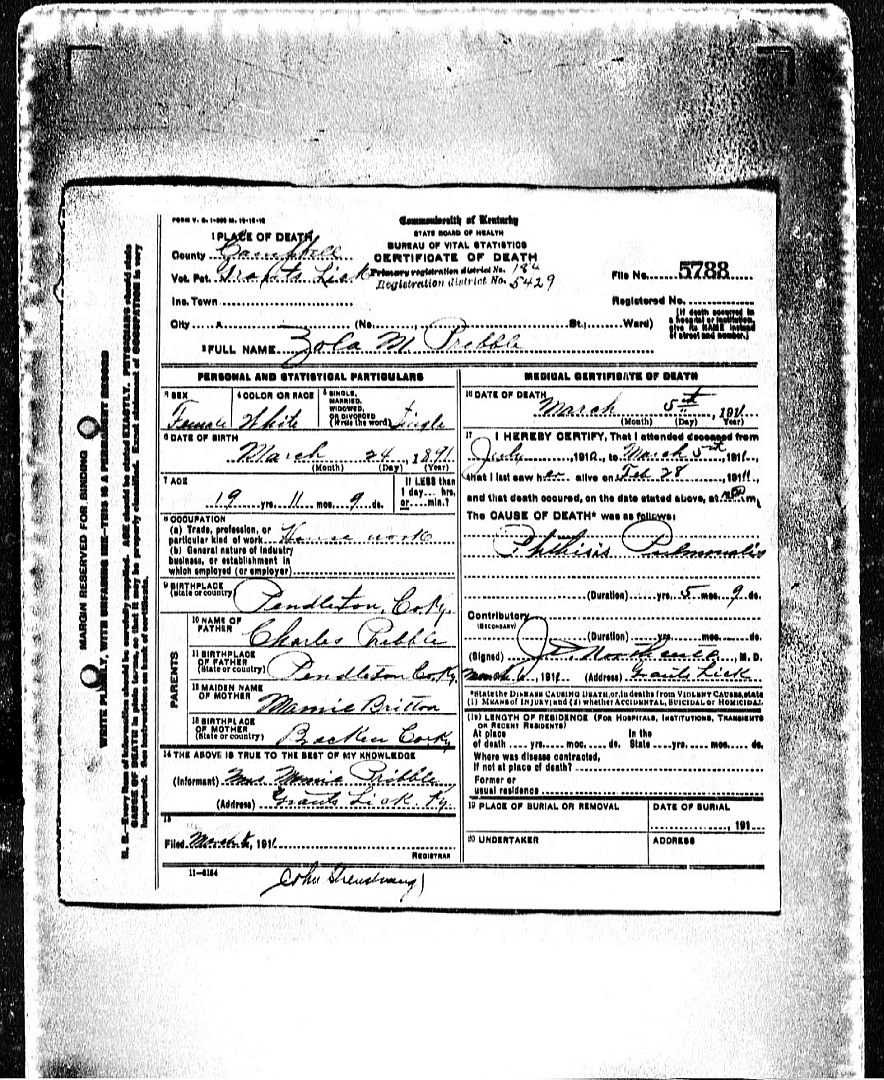 FORM V. S. 1-
Commonwealth of Kentucky
STATE BOARD OF HEALTH
BUREAU OF VITAL STATISTICS
CERTIFICATE OF DEATH
1 PLACE OF DEATH
County Campbell
Vot. Pct. Grants Lick Primary registration district No.
Registration district No. 5429
File No. 5788
Ins. Town
Registered No.
City (No. , St.; Ward)
[If death occurred in a hospital or institution, give its NAME instead of street and number.]
2 FULL NAME Zola M Pribble
PERSONAL AND STATISTICAL PARTICULARS
3 SEX Female
4 COLOR OR RACE White
5 SINGLE, MARRIED, WIDOWED, OR DIVORCED (Write the word) Single
6 DATE OF BIRTH
March 24, 1891
(Month) (Day) (Year)
7 AGE
19 yrs. 11 mos. 9 ds.
If LESS than 1 day... hrs, or....min.?
8 OCCUPATION
(a) Trade, profession, or particular kind of work House work
(b) General nature of industry business, or establishment in which employed (or employer)
9 BIRTHPLACE (State or country) Pendleton, Co Ky.
PARENTS
10 NAME OF FATHER Charles Pribble
11 BIRTHPLACE OF FATHER (State or country) Pendleton Co Ky
12 MAIDEN NAME OF MOTHER Mamie Britton
13 BIRTHPLACE OF MOTHER (State or country) Bracken Co Ky
14 THE ABOVE IS TRUE TO THE BEST OF MY KNOWLEDGE
(Informant) Mrs Mamie Pribble
(Address) Grants Lick. Ky.
15
Filed March 6, 1911
REGISTRAR
11-5184
John
MEDICAL CERTIFICATE OF DEATH
16 DATE OF DEATH
March 5th, 1911
(Month) (Day) (Year)
17 I HEREBY CERTIFY, That I attended deceased from
July, 1910, to March 5th, 1911,
that I last saw her alive on Feb 28, 1911,
and that death occured, on the date stated above, at m.
The CAUSE OF DEATH* was as follows:
Phthisis Pulmonalis
(Duration) yrs. 5 mos. 9 ds.
Contributory
(SECONDARY)
(Duration) yrs. mos. ds.
(Signed) , M. D.
March 6, 1911 (Address) Grants Lick
*State the DISEASE CAUSING DEATH, or, in deaths from VIOLENT CAUSES, state
(1) MEANS of INJURY; and (2) whether ACCIDENTAL, SUICIDAL or HOMICIDAL.
(18) LENGTH OF RESIDENCE (FOR HOSPITALS, INSTITUTIONS, TRANSIENTS OR RECENT RESIDENTS)
At place of death yrs. mos. ds. In the State yrs. mos. ds.
Where was disease contracted,
if not at place of death?
Former or
usual residence
19 PLACE OF BURIAL OR REMOVAL
DATE OF BURIAL
, 191
20 UNDERTAKER
ADDRESS
MARGIN RESERVED FOR BINDING
WRITE PLAINLY, WITH UNFADING INK—THIS IS A PERMANENT RECORD
N. B.—Every item of information should be carefully supplied. AGE should be stated EXACTLY. PHYSICIANS should state
CAUSE OF DEATH in plain terms, so that it may be properly classified. Exact statement of OCCUPATION is very
important. See instructions on back of certificate.